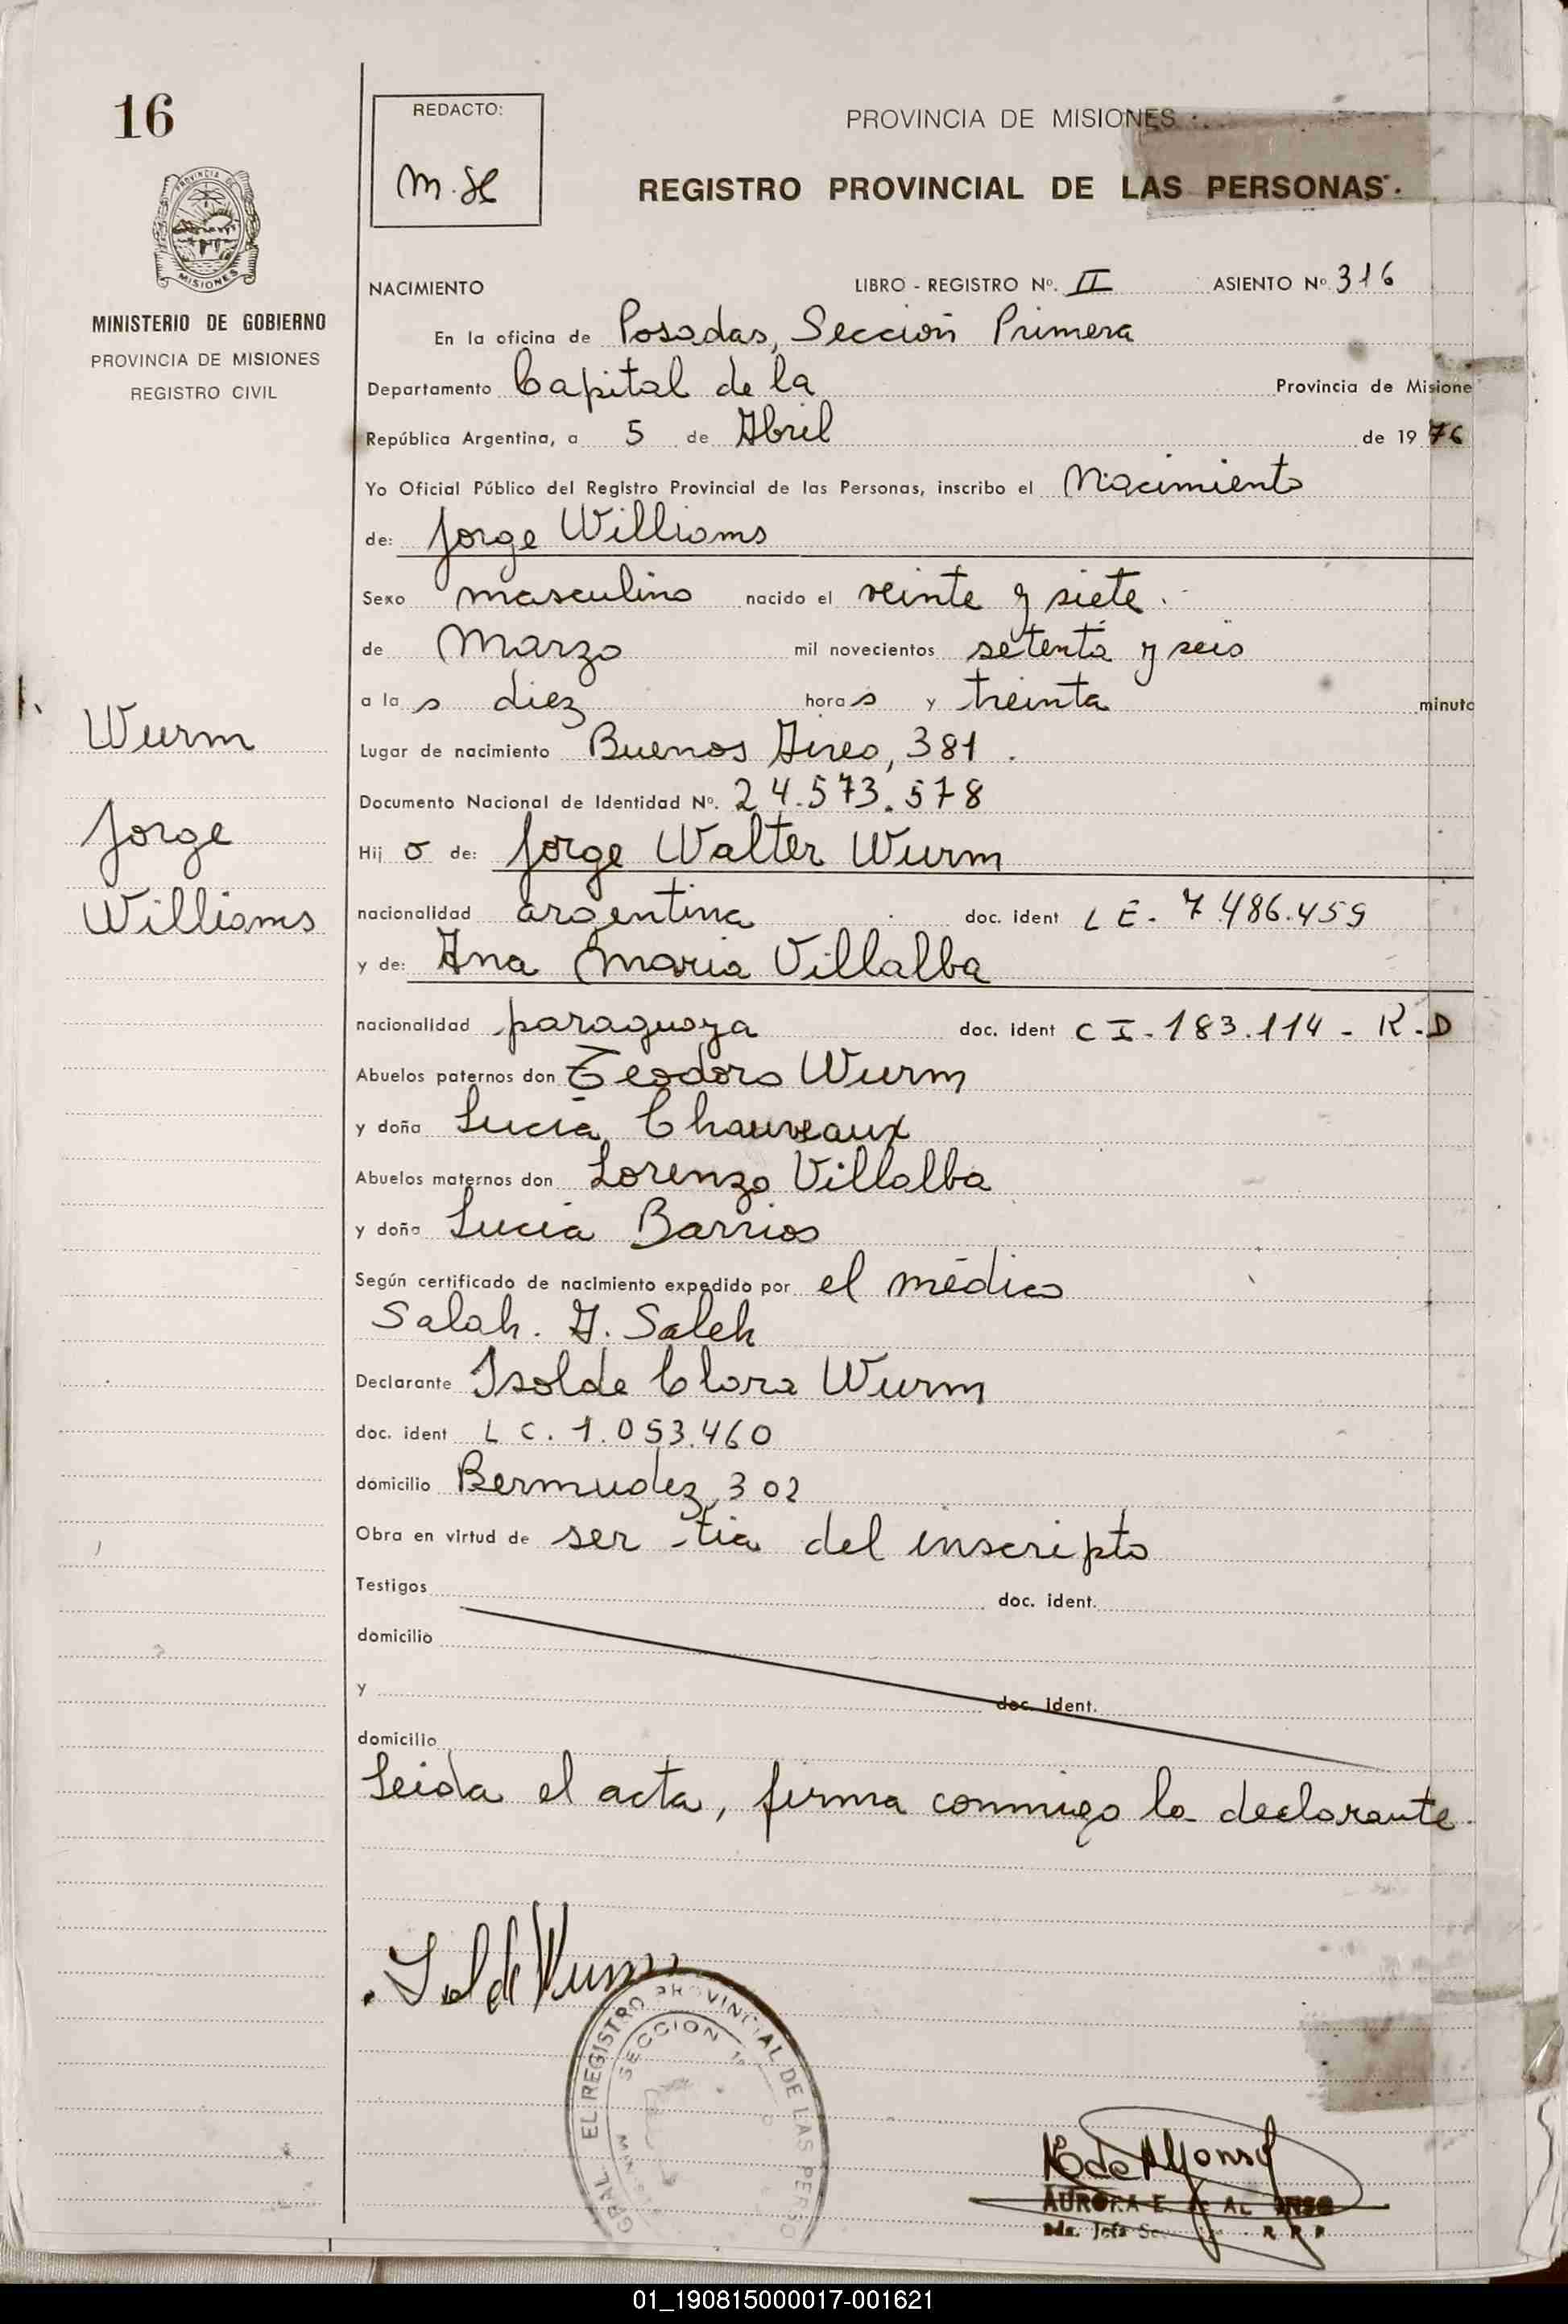 16
REDACTO:
M. H
PROVINCIA DE MISIONES
REGISTRO PROVINCIAL DE LAS PERSONAS
PROVINCIA DE
MISIONES
MINISTERIO DE GOBIERNO
PROVINCIA DE MISIONES
REGISTRO CIVIL
NACIMIENTO LIBRO - REGISTRO Nº. II ASIENTO Nº 316
En la oficina de Posadas, Sección Primera
Departamento Capital de la Provincia de Misione
República Argentina, a 5 de Abril de 1976
Yo Oficial Público del Registro Provincial de las Personas, inscribo el Nacimiento
de: Jorge Williams
Sexo masculino nacido el veinte y siete
de Marzo mil novecientos setenta y seis
a la s diez hora s y treinta minuto
Wurm
Lugar de nacimiento Buenos Aires, 381.
Documento Nacional de Identidad Nº. 24.573.578
Jorge
Hij o de: Jorge Walter Wurm
Williams
nacionalidad argentina doc. ident L E. 7.486.459
y de: Ana Maria Villalba
nacionalidad paraguaya doc. ident C I. 183.114 - R.D
Abuelos paternos don Teodoro Wurm
y doña Lucia Chauveaux
Abuelos maternos don Lorenzo Villalba
y doña Lucia Barrios
Según certificado de nacimiento expedido por el médico
Salah. A. Saleh
Declarante Isolde Clara Wurm
doc. ident L C. 1.053.460
domicilio Bermudez, 302
Obra en virtud de ser tia del inscripto
Testigos doc. ident.
domicilio
y doc. ident.
domicilio
Leida el acta, firma conmigo la declarante.
Isolde Wurm
GRAL. EL REGISTRO PROVINCIAL DE LAS PERSO
SECCION 1ª
E de Alfonso
AURORA E.
01_190815000017-001621